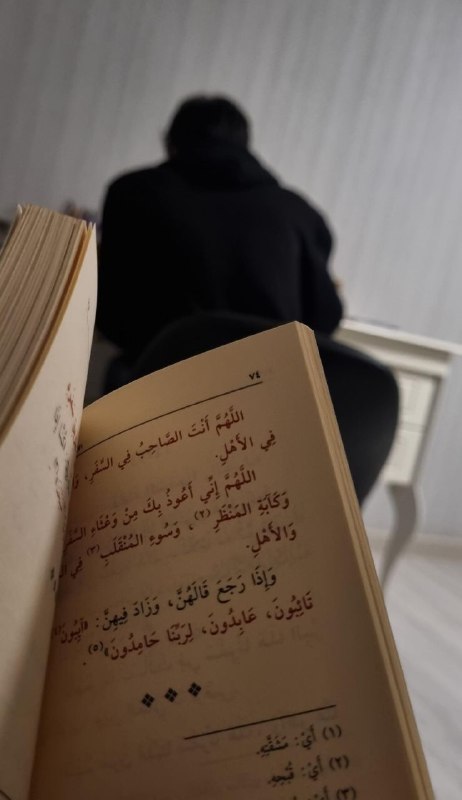 ٧٤
اللَّهُمَّ أَنْتَ الصَّاحِبُ فِي السَّفَرِ،
فِي الأَهْلِ.
اللَّهُمَّ إِنِّي أَعُوذُ بِكَ مِنْ وَعْثَاءِ
وَكَآبَةِ المَنْظَرِ (٢)، وَسُوءِ المُنْقَلَبِ (٣) فِي
وَالأَهْلِ.
وَإِذَا رَجَعَ قَالَهُنَّ، وَزَادَ فِيهِنَّ: «آيِبُونَ
تَائِبُونَ، عَابِدُونَ، لِرَبِّنَا حَامِدُونَ»(٥).
(١) أَيْ: مَشَقَّتِهِ.
(٢) أَيْ: قُبْحِهِ.
(٣) أَيْ: